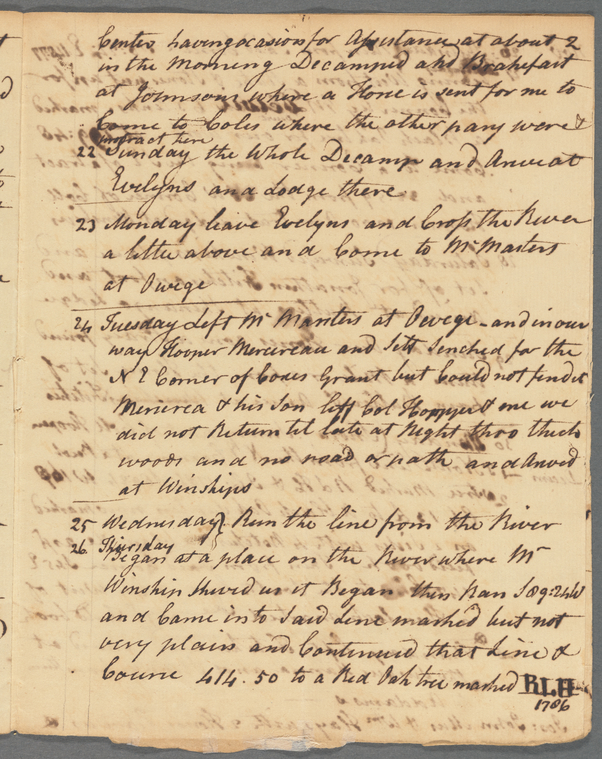 Center having ocasion for Assistance at about 2
in the Morning Decamped and Brakefast
at Johnsons where a Horse is sent for me to
Come to Coles where the other pary were &
instruct here
22 Sunday the Whole Decamp and Arive at
Evelyns and Lodge there
23 Monday leave Evelyns and Cross the River
a little above and Come to Mr Masters
at Owege
24 Tuesday Left Mr Masters at Owege - and in our
way Hooper Mercereau and Self Serched for the
N E Corner of Coxes Grant but Could not find it
& his Son left Col Hooper & me we
did not Return til late at Night thro thick
woods and no road or path and Arived
at Winships
25 Wednesday } Run the line from the River
26 Thursday
Began at a place on the River where Mr
Winship Shewed us it Began then Ran S 89:24 W
and Came in to Said Line marked but not
very plain and Continued that Line &
Course 414.50 to a Red Oak tree marked RLH
1786